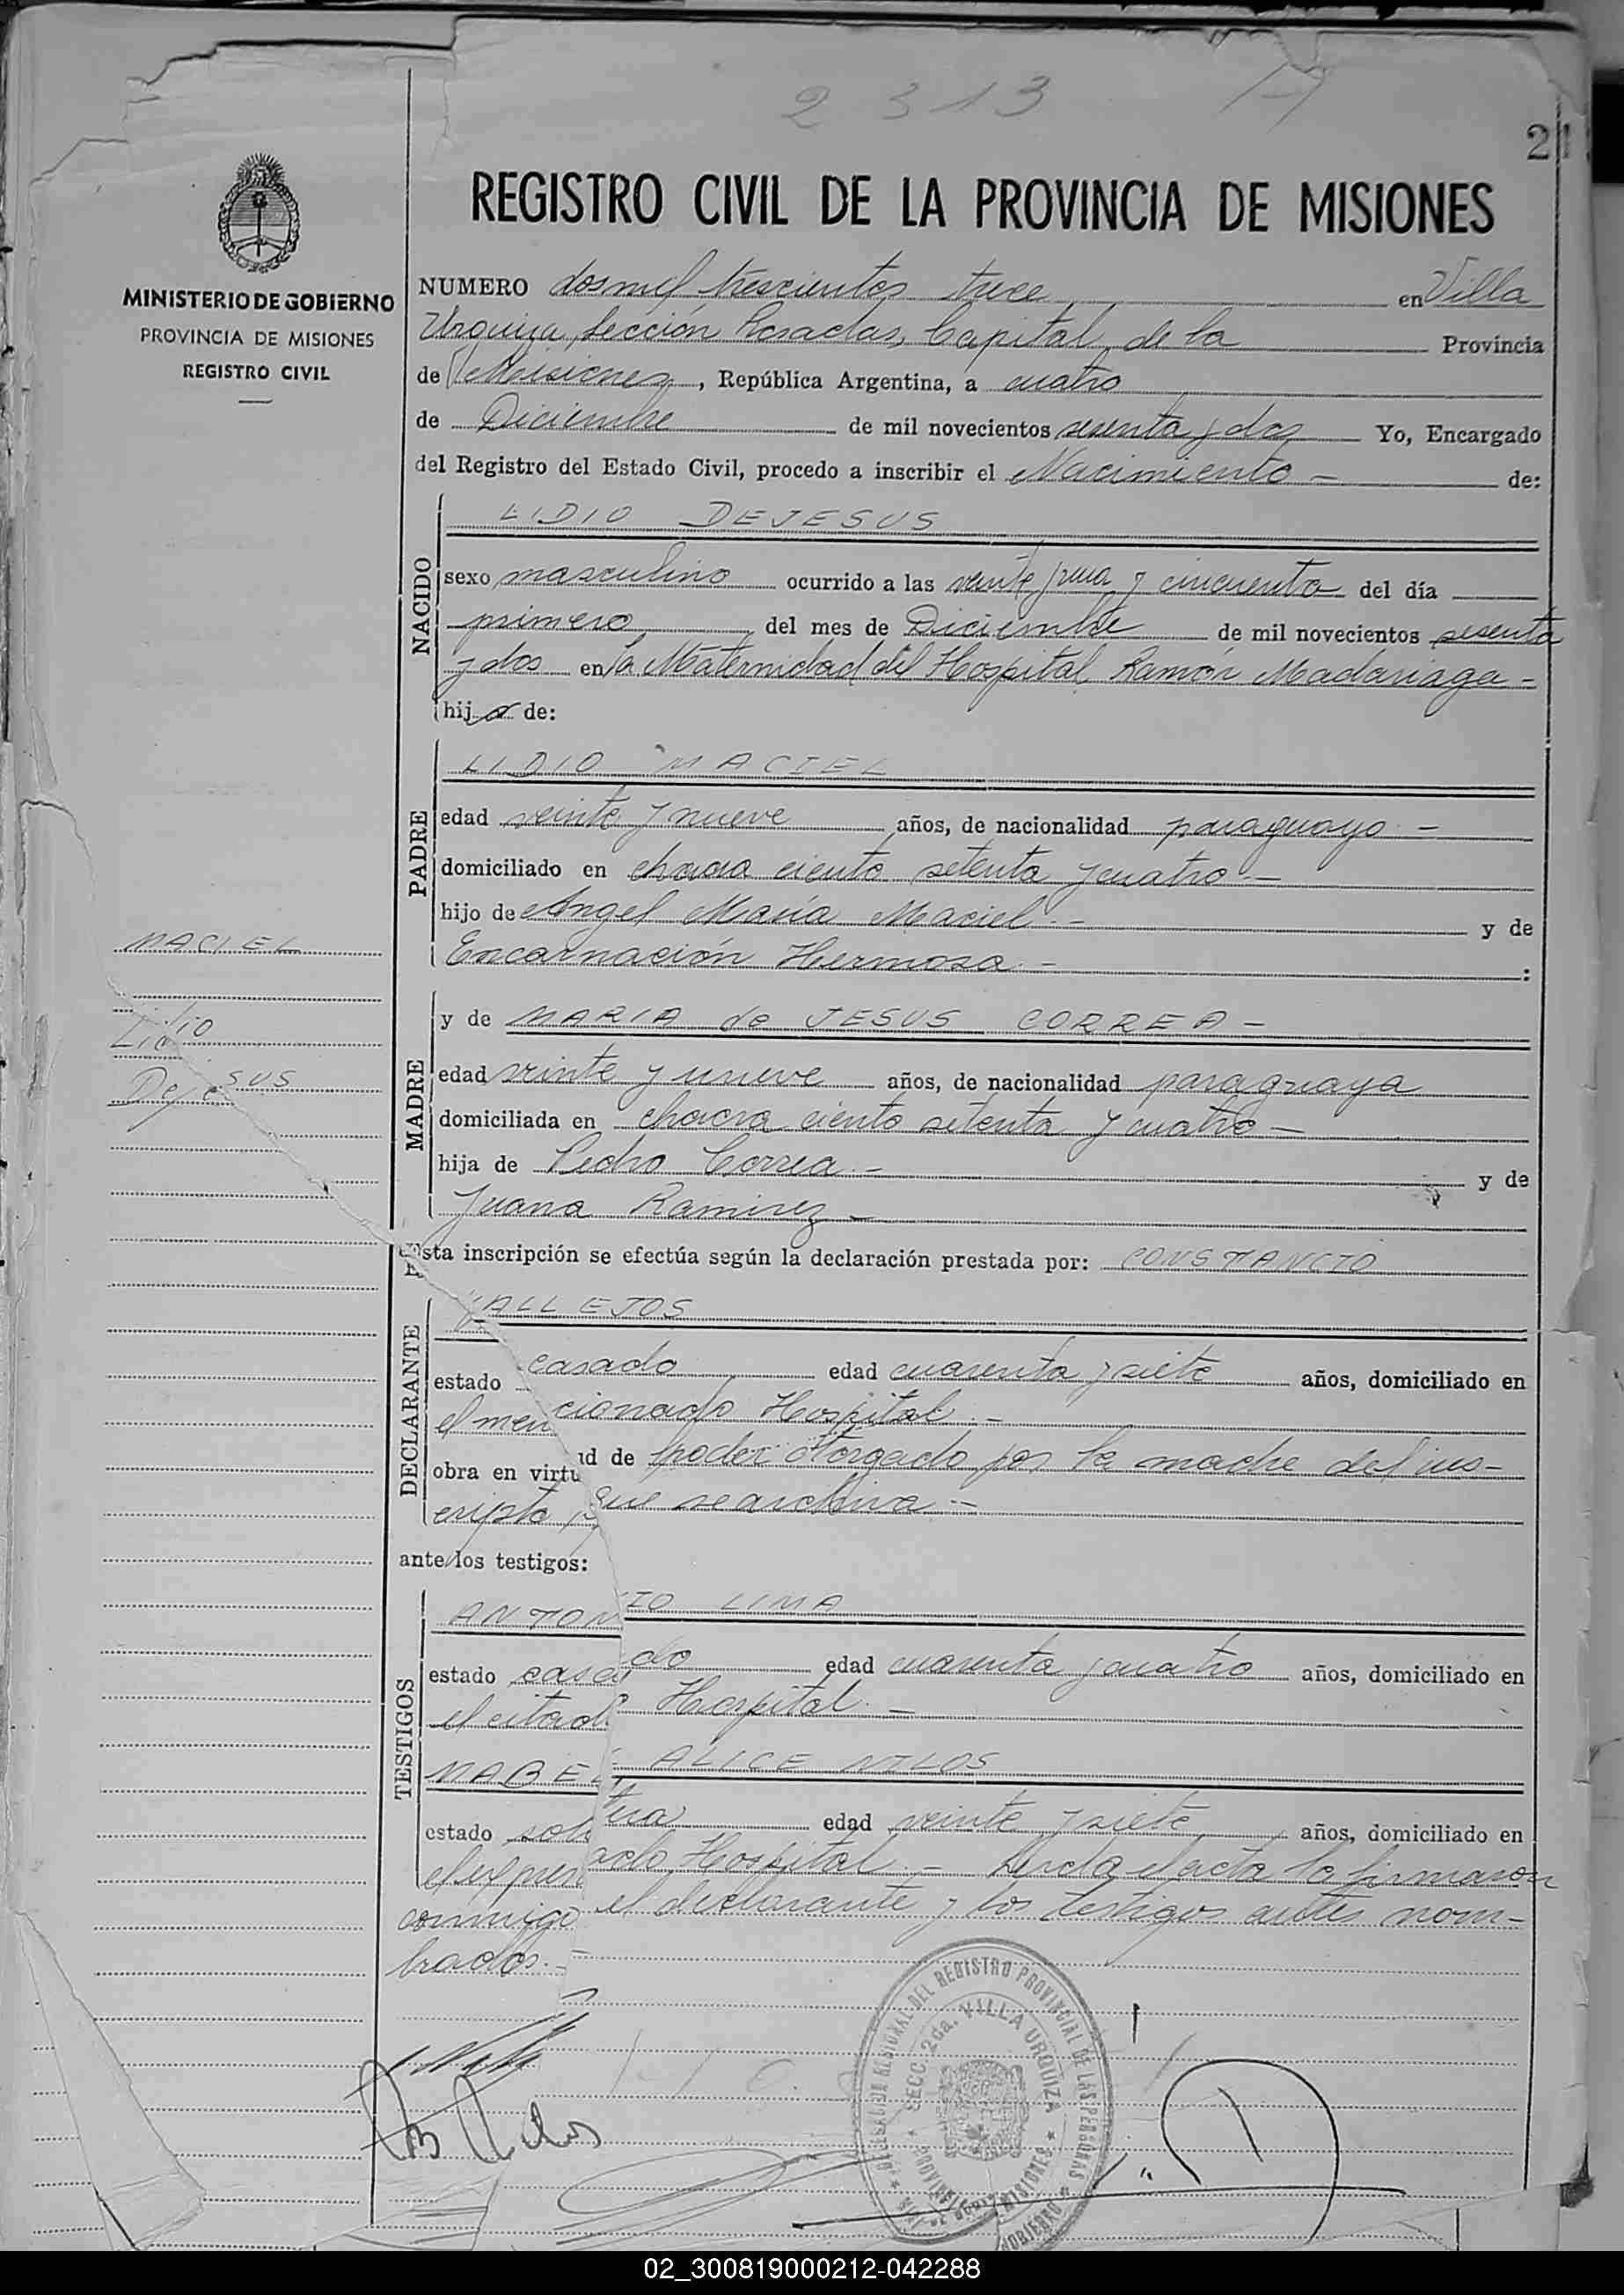 2313
21
REGISTRO CIVIL DE LA PROVINCIA DE MISIONES
MINISTERIO DE GOBIERNO
PROVINCIA DE MISIONES
REGISTRO CIVIL
NUMERO dos mil trescientos trece en Villa
Urquiza, Sección Posadas, Capital de la Provincia
de Misiones, República Argentina, a cuatro
de Diciembre de mil novecientos sesenta y dos Yo, Encargado
del Registro del Estado Civil, procedo a inscribir el Nacimiento - de:
NACIDO
LIDIO DEJESUS
sexo masculino ocurrido a las veinte y una y cincuenta del día
primero del mes de Diciembre de mil novecientos sesenta
y dos en la Maternidad del Hospital Ramón Madariaga -
hijo de:
PADRE
LIDIO MACIEL
edad veinte y nueve años, de nacionalidad paraguayo -
domiciliado en chacra ciento setenta y cuatro -
hijo de Angel María Maciel - y de
Encarnación Hermosa - :
MACIEL
Lidio
Dejesus
MADRE
y de MARIA de JESUS CORREA -
edad veinte y nueve años, de nacionalidad paraguaya
domiciliada en chacra ciento setenta y cuatro -
hija de Pedro Correa - y de
Juana Ramirez -
Esta inscripción se efectúa según la declaración prestada por: CONSTANCIO
DECLARANTE
VALLEJOS
estado casado edad cuarenta y siete años, domiciliado en
el mencionado Hospital. -
obra en virtud de poder otorgado por la madre del ins-
cripto, que se archiva -
ante los testigos:
TESTIGOS
ANTONIO LIMA
estado casado edad cuarenta y cuatro años, domiciliado en
el citado Hospital. -
MABEL ALICE NILOS
estado soltera edad veinte y siete años, domiciliado en
el expresado Hospital. - Leída el acta la firmaron
conmigo el declarante y los testigos antes nom-
brados. -
DELEGACION REGIONAL DEL REGISTRO PROVINCIAL DE LAS PERSONAS
SECC. 2da. VILLA URQUIZA
PROVINCIA MISIONES
02_300819000212-042288